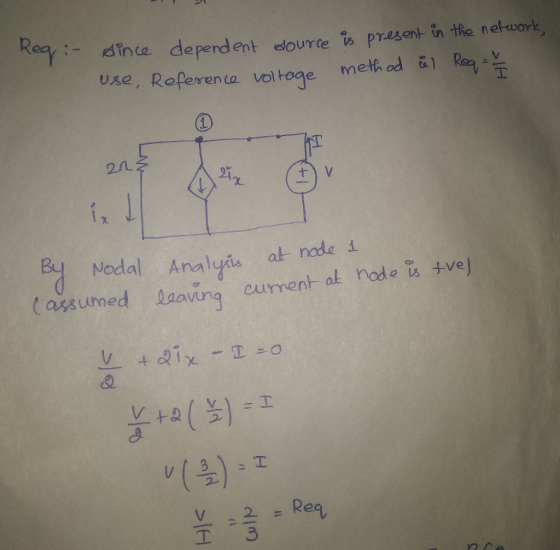 Req :- Since dependent source is present in the network,
use, Reference voltage method is) Req = V/I
①
2Ω
2ix
I
+
−
V
ix ↓
By Nodal Analysis at node 1
(assumed leaving current at node is +ve)
V/2 + 2ix - I = 0
V/2 + 2(V/2) = I
V(3/2) = I
V/I = 2/3 = Req